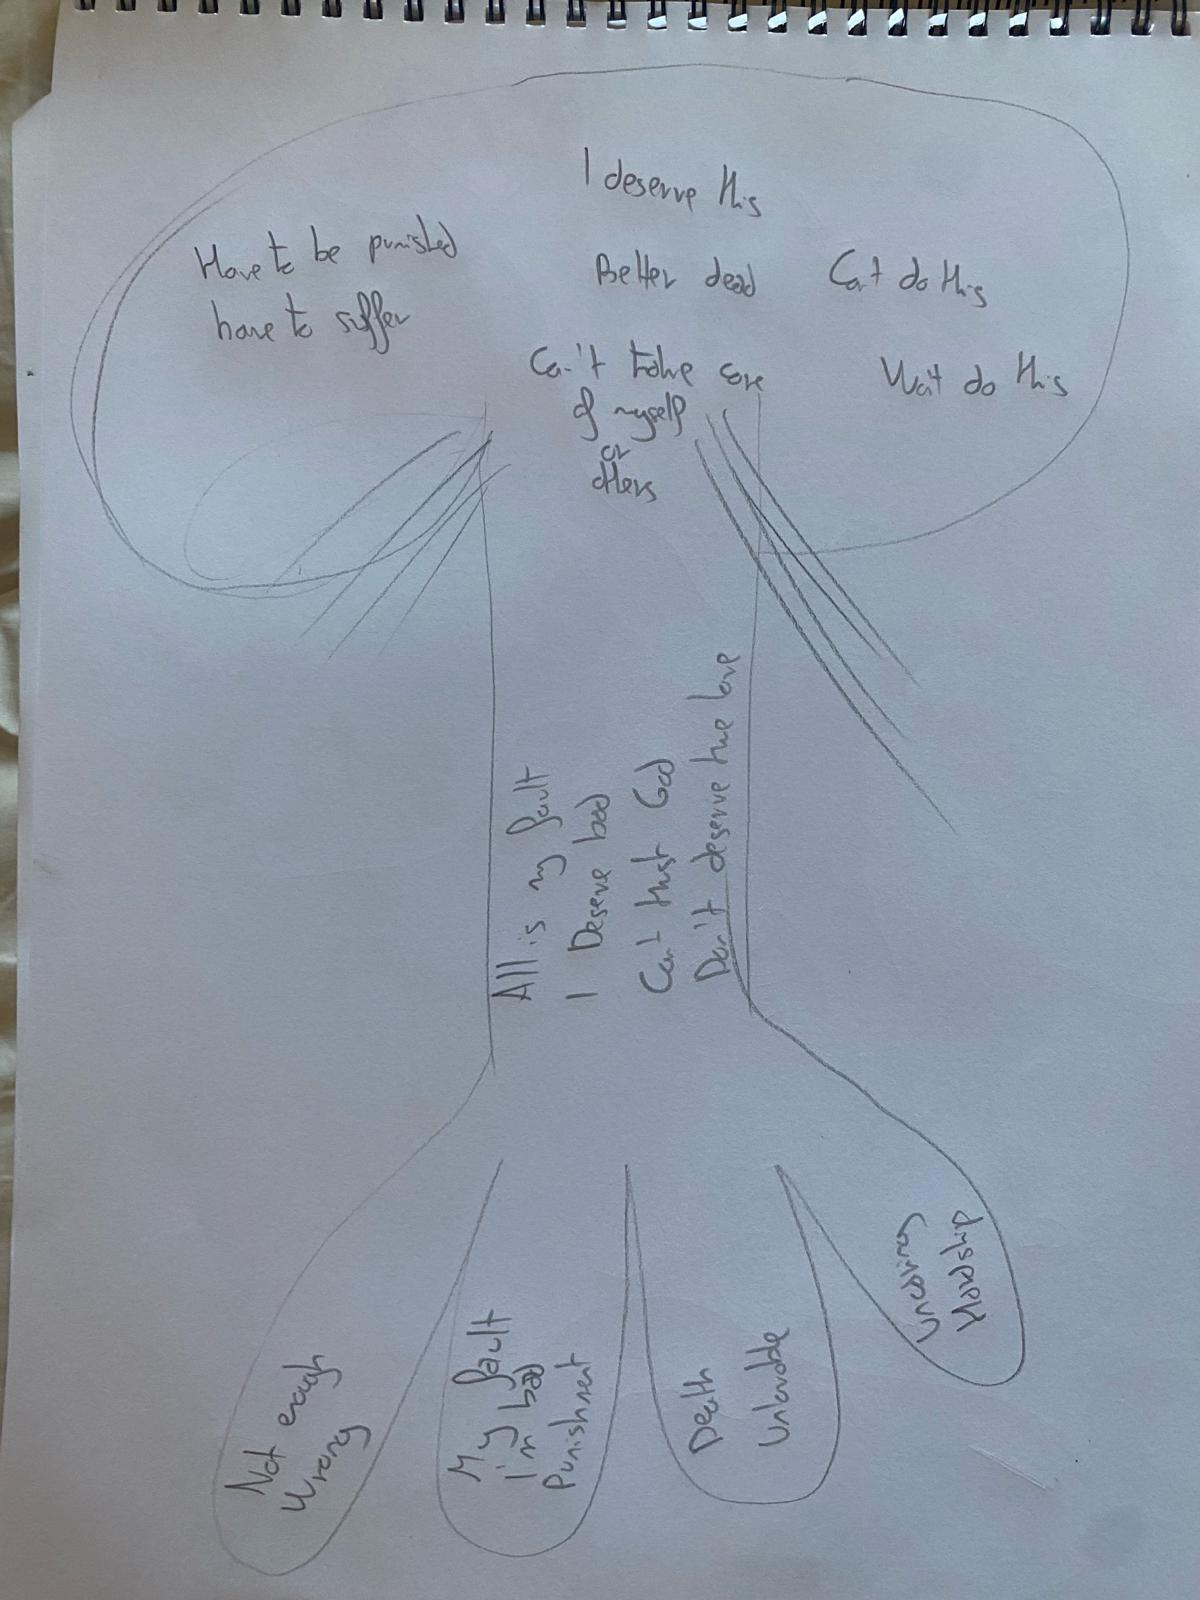 I deserve this
Have to be punished
have to suffer
Better dead
Can't do this
Can't take care
of myself
or
others
Wait do this
All is my fault
I Deserve bad
Can't trust God
Don't deserve true love
Not enough
Wrong
My fault
I'm bad
Punishment
Death
Unlovable
Uncaring
Hardship